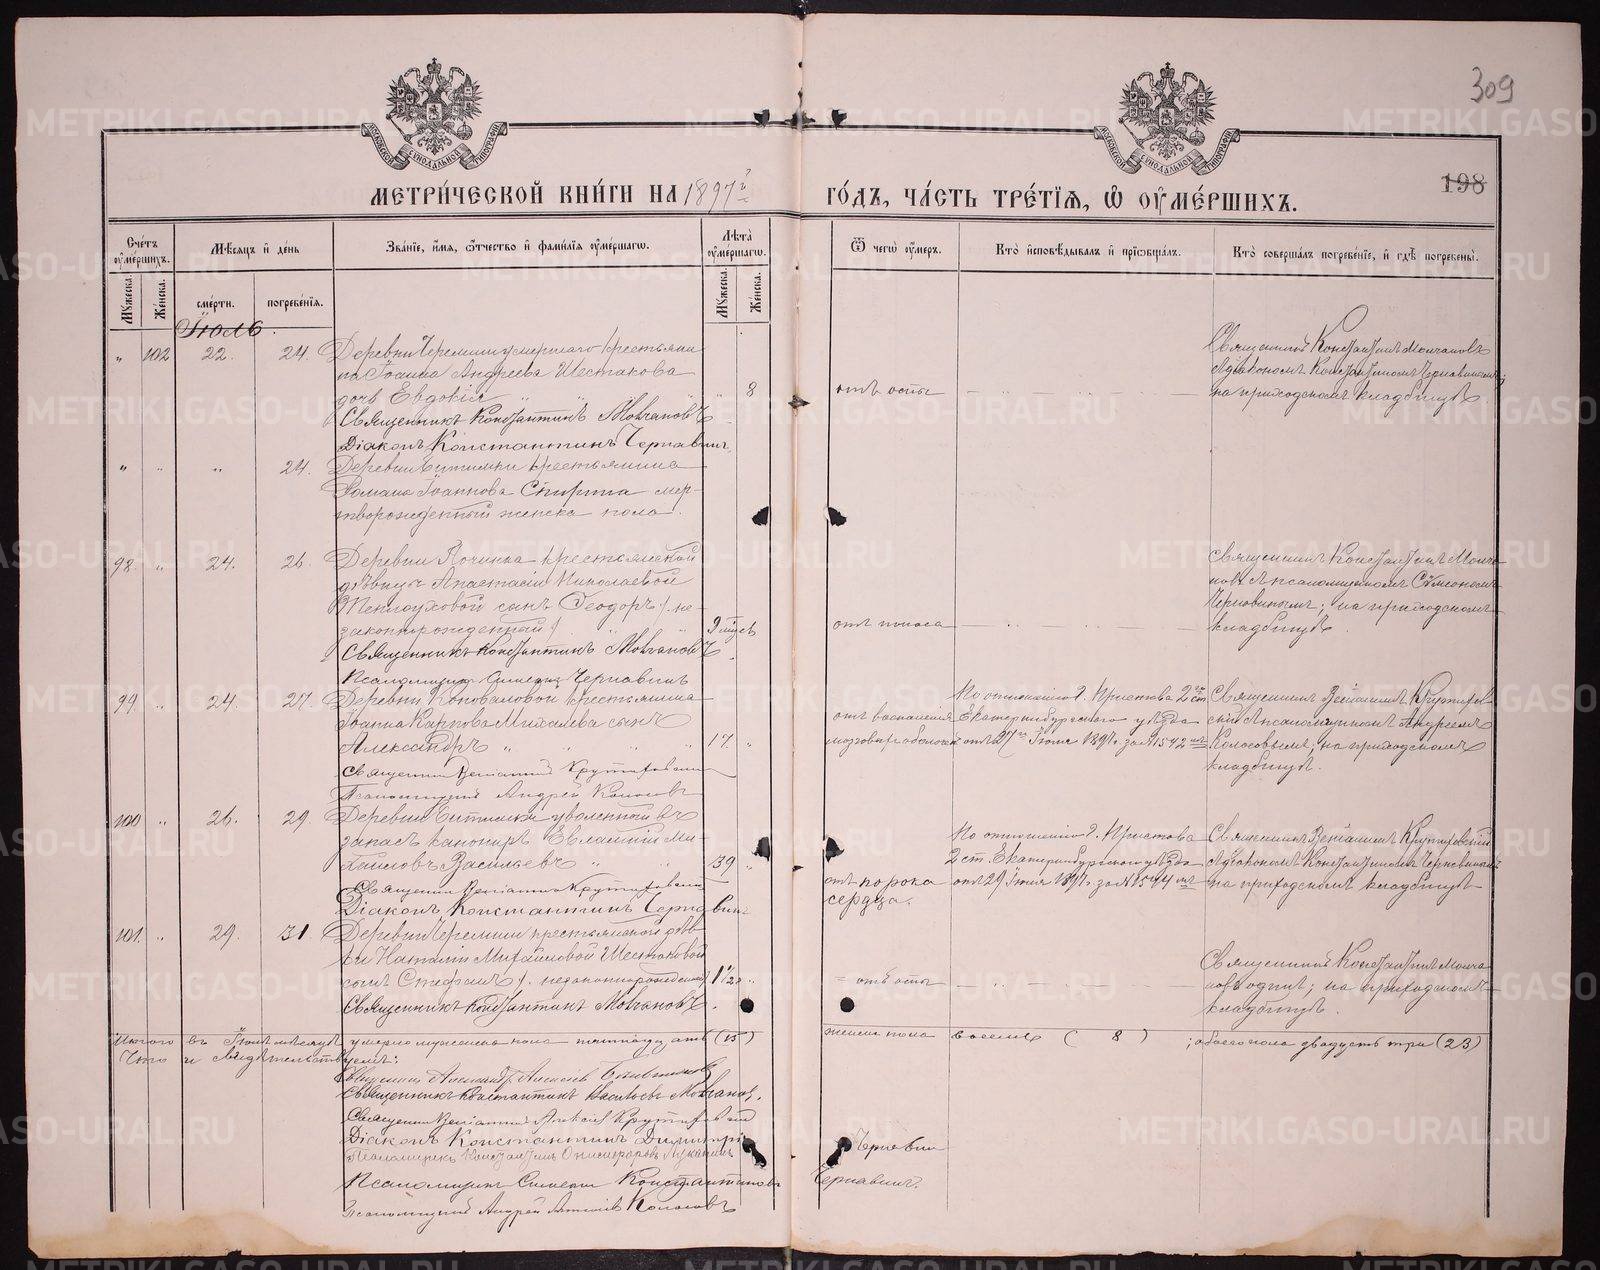 309
198
МЕТРИ́ЧЕСКОЙ КНИ́ГИ НА 1897й
ГО́ДЪ, ЧА́СТЬ ТРЕ́ТІѦ, Ѡ҆ ОУ҆МЕ́РШИХЪ.
Сче́тъ оу҆ме́ршихъ.
Мѣ́сяцъ и҆ де́нь
Зва́ніе, и҆́мѧ, ѻ҆́тчество и҆ фами́лїѧ оу҆ме́ршагѡ.
Лѣ́та оу҆ме́ршагѡ.
Ѿ чегѡ̀ оу҆́меръ.
Кто̀ и҆сповѣ́дывалъ и҆ прїѡбща́лъ.
Кто̀ соверша́лъ погребе́нїе, и҆ гдѣ̀ погребены̀.
Му́жеска.
Же́нска.
сме́рти.
погребе́нїѧ.
Му́жеска.
Же́нска.
Іюль.
" 102 22. 24. Деревни Черемши умершаго крестьяни
на Іоанна Андреева Шестакова
дочь Евдокія 8 отъ оспы
Священникъ Константинъ Молчановъ
Діаконъ Константинъ Чернавинъ
Священникъ Константинъ Молчановъ
съ діакономъ Константиномъ Чернавинымъ;
на приходскомъ кладбищѣ.
" " " 24. Деревни крестьянина
Романа Іоаннова Спирина мер-
творожденный женска пола.
98 " 24. 26. Деревни Починка крестьянской
дѣвицы Анастасіи Николаевой
Теплоуховой сынъ Ѳеодоръ / не-
законнорожденный / 9 мѣсѣ отъ поноса
Священникъ Константинъ Молчановъ
Псаломщикъ Симеонъ Чернавинъ
Священникъ Константинъ Молча-
новъ съ псаломщикомъ Сѵмеономъ
Чернавинымъ; на приходскомъ
кладбищѣ.
99 " 24 27. Деревни Коноваловой крестьянина
Іоанна Карпова Михалева сынъ
Александръ " " " " 17. "
Священникъ Веніаминъ
Псаломщикъ Андрей Колосовъ
отъ воспаленія
мозговых оболочекъ
По отношенію г. Пристава 2го ст
Екатеринбургскаго уѣзда
отъ 27го Іюля 1897г за №1542мъ
Священникъ Веніаминъ
съ псаломщикомъ Андреемъ
Колосовымъ; на приходскомъ
кладбищѣ.
100 " 26. 29. Деревни уволенный въ
запасъ канониръ Евлампій Ми-
хайловъ Васильевъ " " 39 "
Священникъ Веніаминъ
Діаконъ Константинъ Чернавинъ
отъ порока
сердца.
По отношенію г. Пристава
2 ст. Екатеринбургскаго уѣзда
отъ 29 Іюля 1897г за №1544мъ
Священникъ Веніаминъ
съ діакономъ Константиномъ Чернавинымъ
на приходскомъ кладбищѣ
101. " 29. 31. Деревни Черемши крестьянской дѣв-
Наталіи Михайловой Шестаковой
сынъ Стефанъ /. незаконнорожденный/ 1½ " отъ оспы
Священникъ Константинъ Молчановъ.
Священникъ Константинъ Молча-
новъ одинъ; на приходскомъ
кладбищѣ.
Итого въ Іюлѣ мѣсяцѣ умерло мужеска пола пятнадцать (15) женска пола восемь ( 8 ) ; обоего пола двадцать три (23)
Что и свидѣтельствуемъ:
Священникъ Александръ Алексіевъ
Священникъ Константинъ Васильевъ Молчановъ.
Священникъ Веніаминъ Алексіевъ
Діаконъ Константинъ Димитріевъ Чернавинъ
Псаломщикъ Константинъ Луканинъ
Псаломщикъ Симеонъ Константиновъ Чернавинъ.
Псаломщикъ Андрей Колосовъ
METRIKI.GASO-URAL.RU